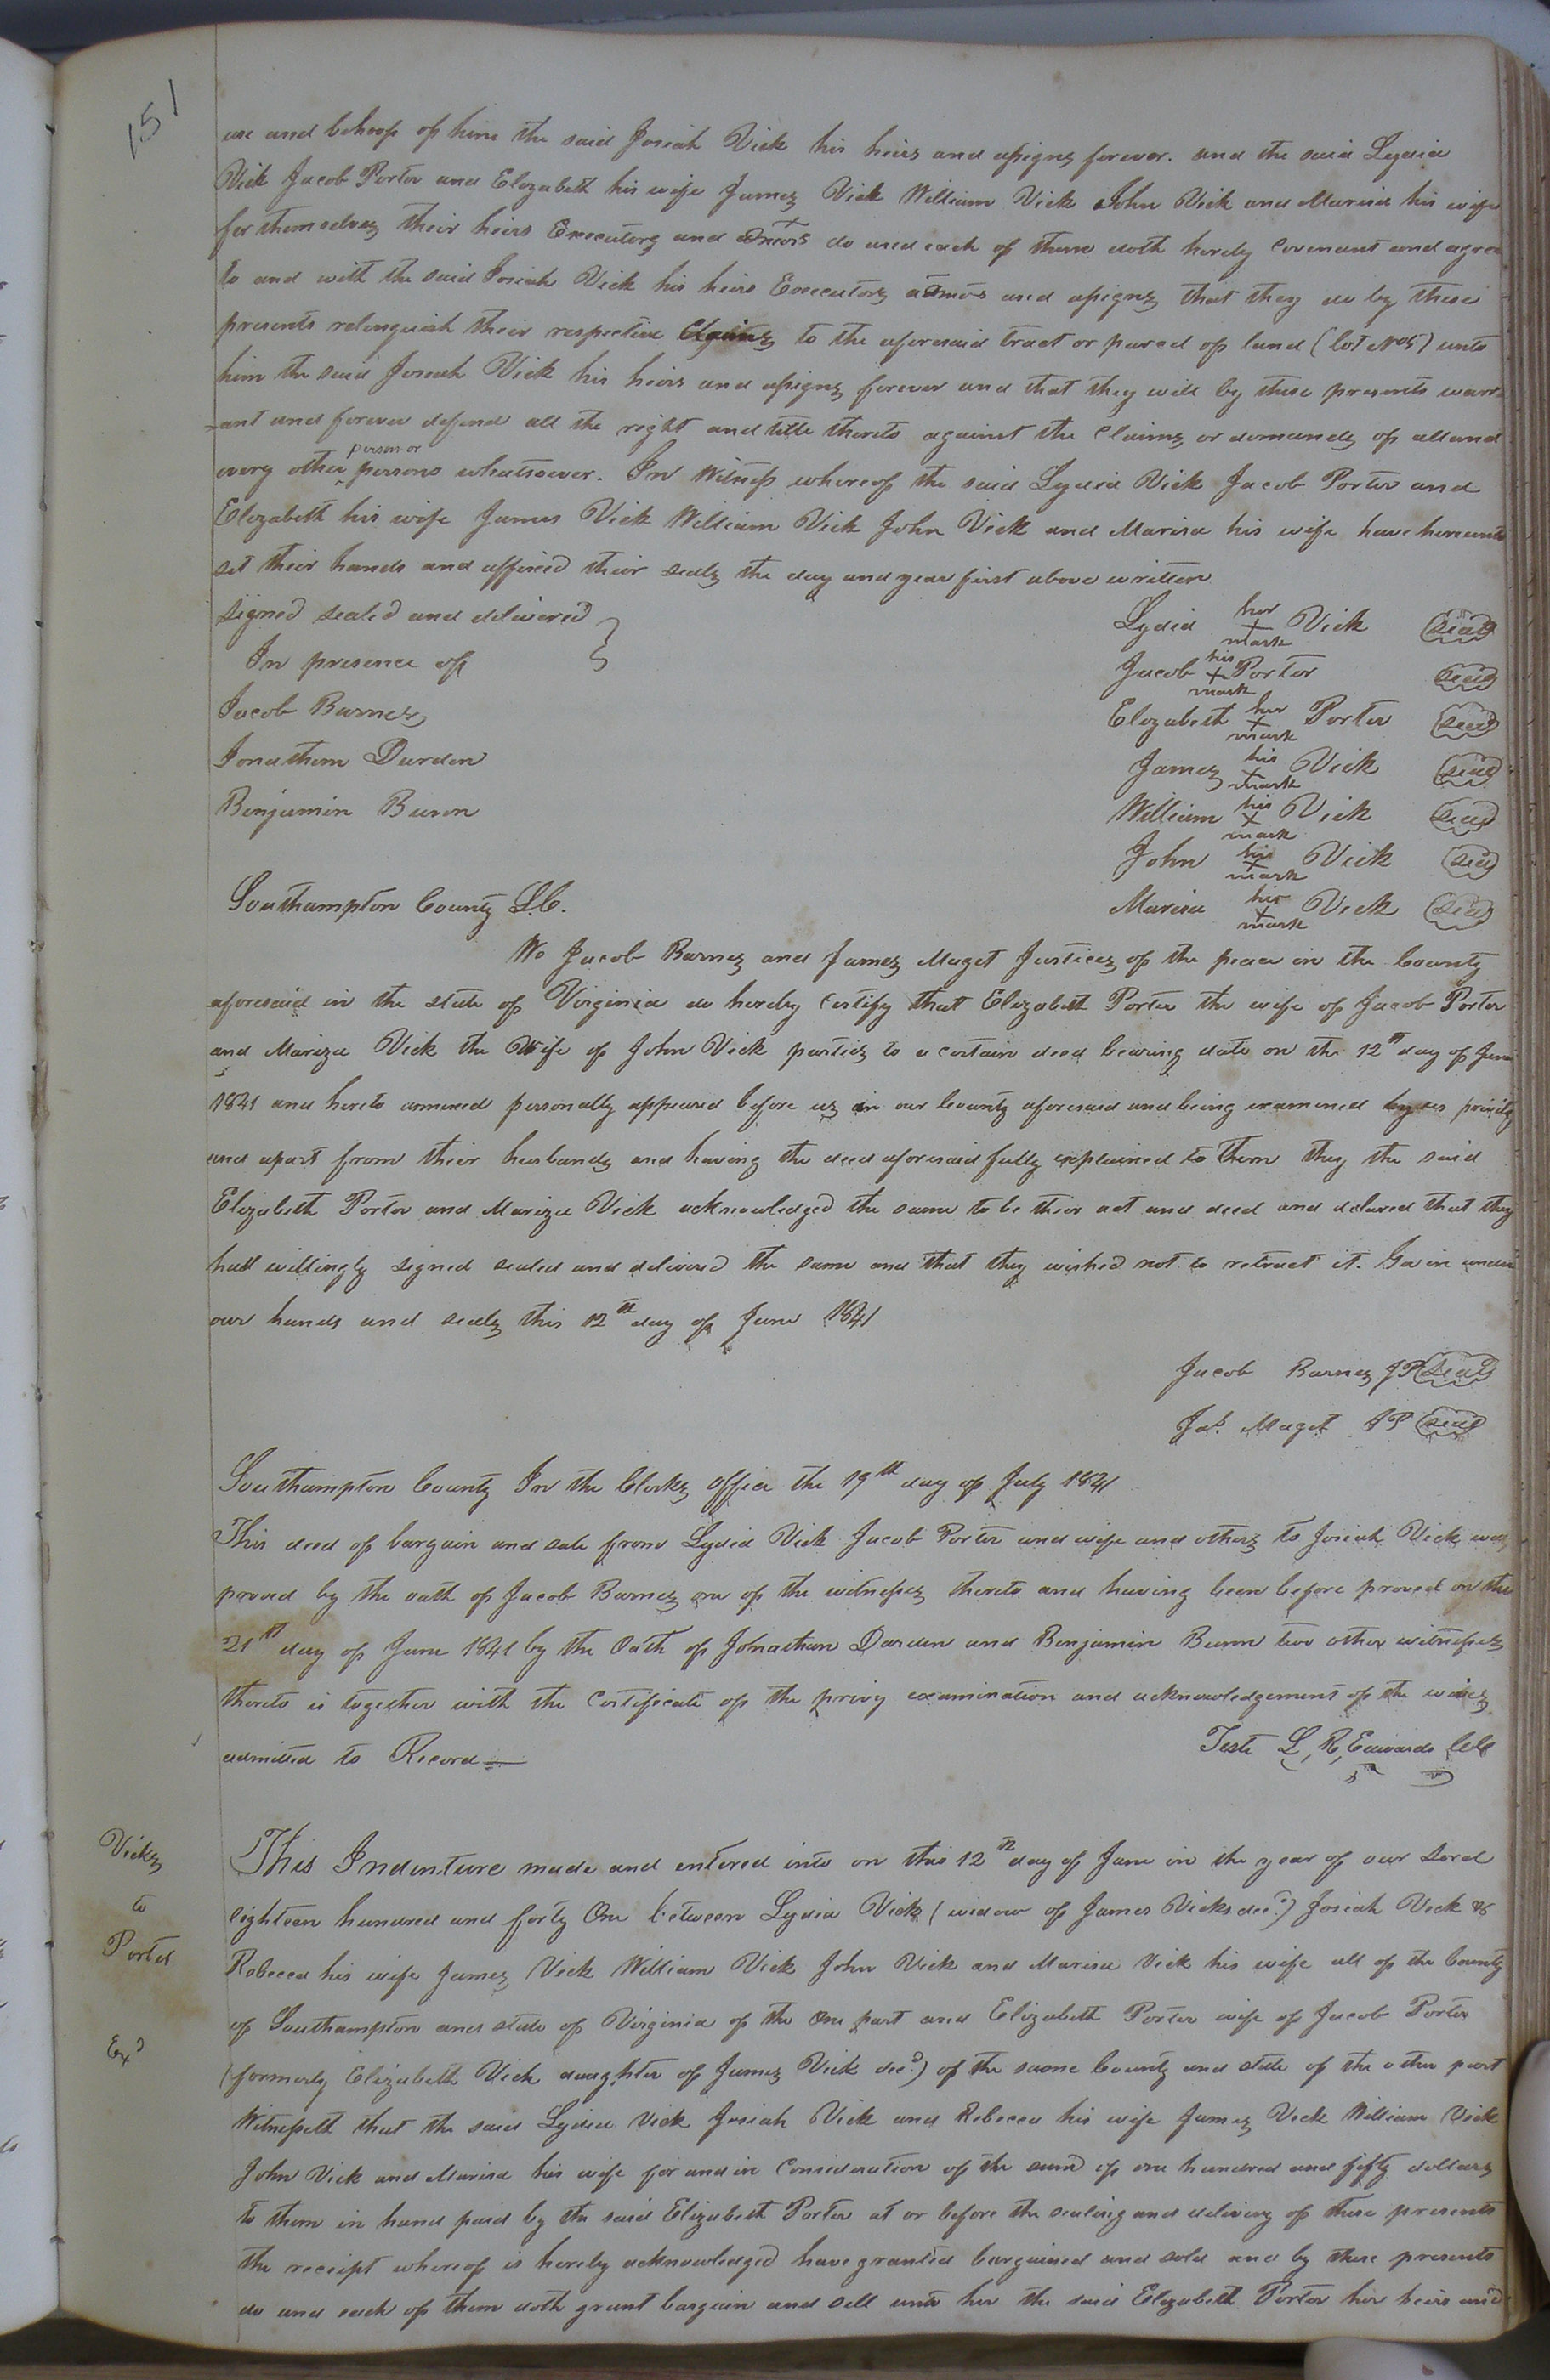 151
use and behoof of him the said Josiah Vick his heirs and assigns forever. and the said Lydia
Vick Jacob Porter and Elizabeth his wife James Vick William Vick John Vick and Marisa his wife
for themselves their heirs Executors and admors do and each of them doth hereby covenant and agree
to and with the said Josiah Vick his heirs Executors admors and assigns that they do by these
presents relinquish their respective Claims to the aforesaid tract or parcel of land (lot No 5) unto
him the said Josiah Vick his heirs and assigns forever and that they will by these presents warr
=ant and forever defend all the right and title thereto against the Claims or demands of all and
every other person or persons whatsoever. In Witness whereof the said Lydia Vick Jacob Porter and
Elizabeth his wife James Vick William Vick John Vick and Marisa his wife have hereunto
set their hands and affixed their seals the day and year first above written
Signed sealed and delivered } Lydia her + mark Vick seal
In presence of Jacob his + mark Porter seal
Jacob Barnes Elizabeth her + mark Porter seal
Jonathan Darden James his + mark Vick seal
Benjamin Buron William his + mark Vick seal
John his + mark Vick seal
Southampton County S.C. Marisa his + mark Vick seal
We Jacob Barnes and James Maget Justices of the peace in the County
aforesaid in the state of Virginia do hereby certify that Elizabeth Porter the wife of Jacob Porter
and Mariza Vick the Wife of John Vick parties to a certain deed bearing date on the 12th day of June
1841 and hereto annexed personally appeared before us in our County aforesaid and being examined by us privily
and apart from their husbands and having the deed aforesaid fully explained to them they the said
Elizabeth Porter and Mariza Vick acknowledged the same to be their act and deed and declared that they
had willingly signed sealed and delivered the same and that they wished not to retract it. Given under
our hands and seals this 12th day of June 1841
Jacob Barnes JP seal
Jas. Maget JP seal
Southampton County In the Clerks Office the 19th day of July 1841
This deed of bargain and sale from Lydia Vick Jacob Porter and wife and others to Josiah Vick was
proved by the oath of Jacob Barnes one of the witnesses thereto and having been before proved on the
21st day of June 1841 by the Oath of Johnathan Darden and Benjamin Buron two other witnesses
thereto is together with the Certificate of the privy examination and acknowledgement of the wives
admitted to Record Teste L, R, Edwards CC
Vicks
to
Porter
Exd
This Indenture made and entered into on this 12th day of June in the year of our Lord
eighteen hundred and forty One between Lydia Vick (widow of James Vicks decd) Josiah Vick &
Rebecca his wife James Vick William Vick John Vick and Marisa Vick his wife all of the County
of Southampton and state of Virginia of the One part and Elizabeth Porter wife of Jacob Porter
(formerly Elizabeth Vick daughter of James Vick decd) of the same County and state of the other part
Witnesseth that the said Lydia Vick Josiah Vick and Rebecca his wife James Vick William Vick
John Vick and Marisa his wife for and in Consideration of the sum of one hundred and fifty dollars
to them in hand paid by the said Elizabeth Porter at or before the sealing and delivery of these presents
the receipt whereof is hereby acknowledged have granted bargained and sold and by these presents
do and each of them doth grant bargain and sell unto her the said Elizabeth Porter her heirs and